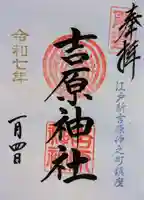 奉拝
江戸新吉原仲之町鎮座
吉原神社
令和七年
一月四日